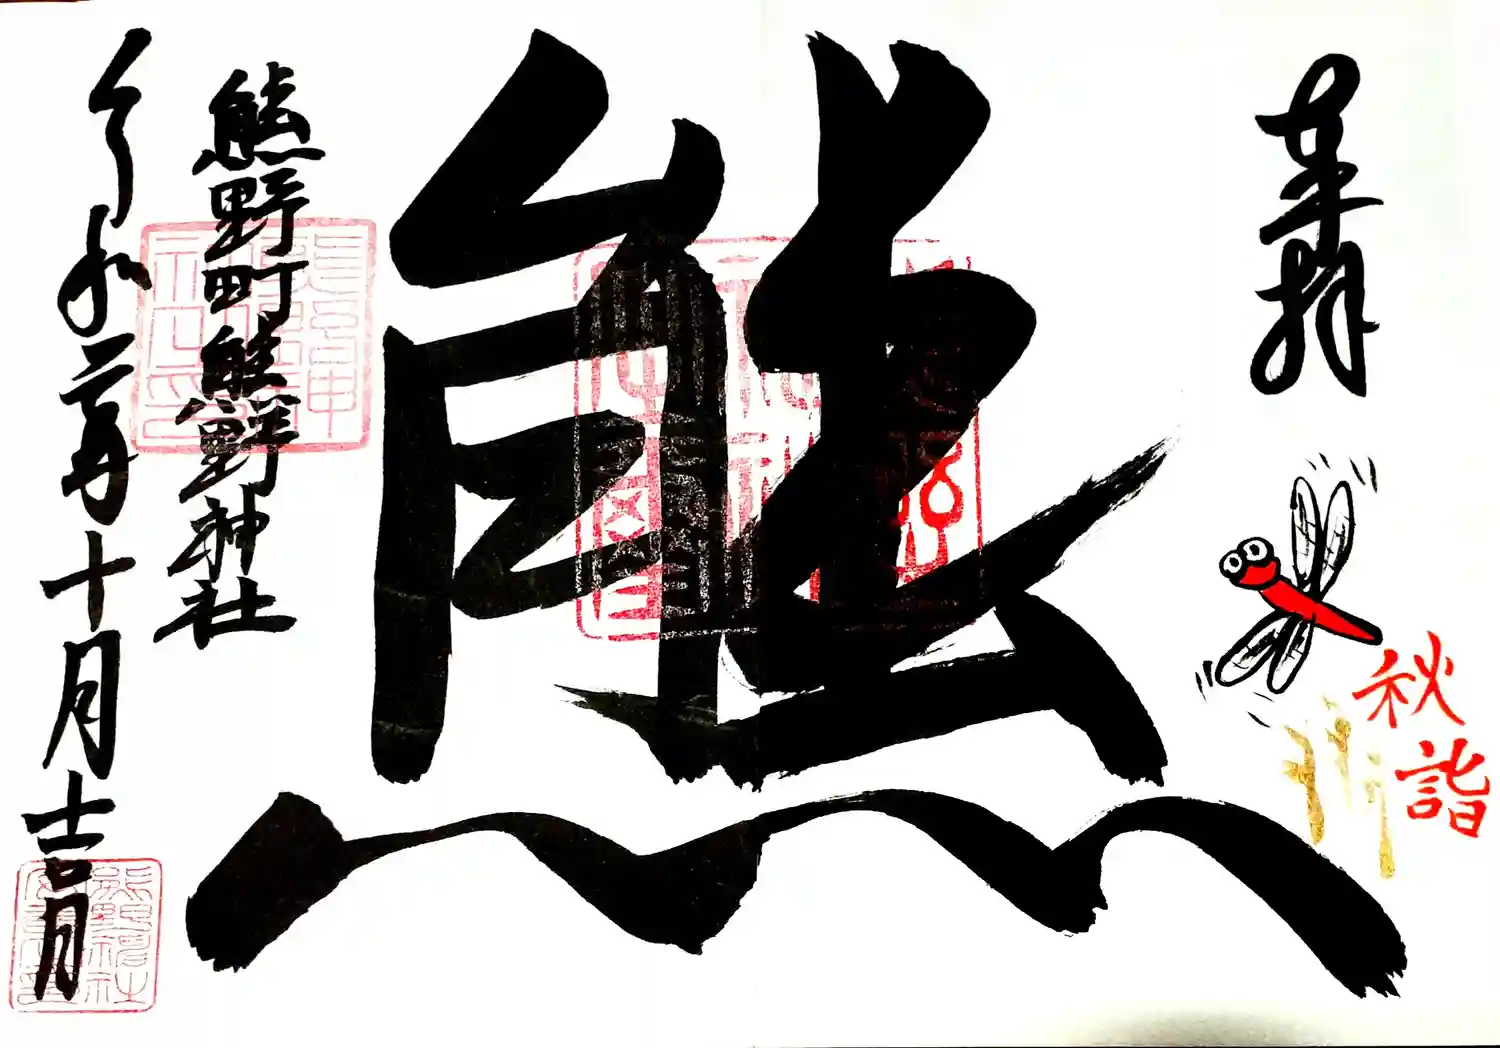 奉拝
秋詣
熊
熊野町熊野神社
令和二年十月吉日